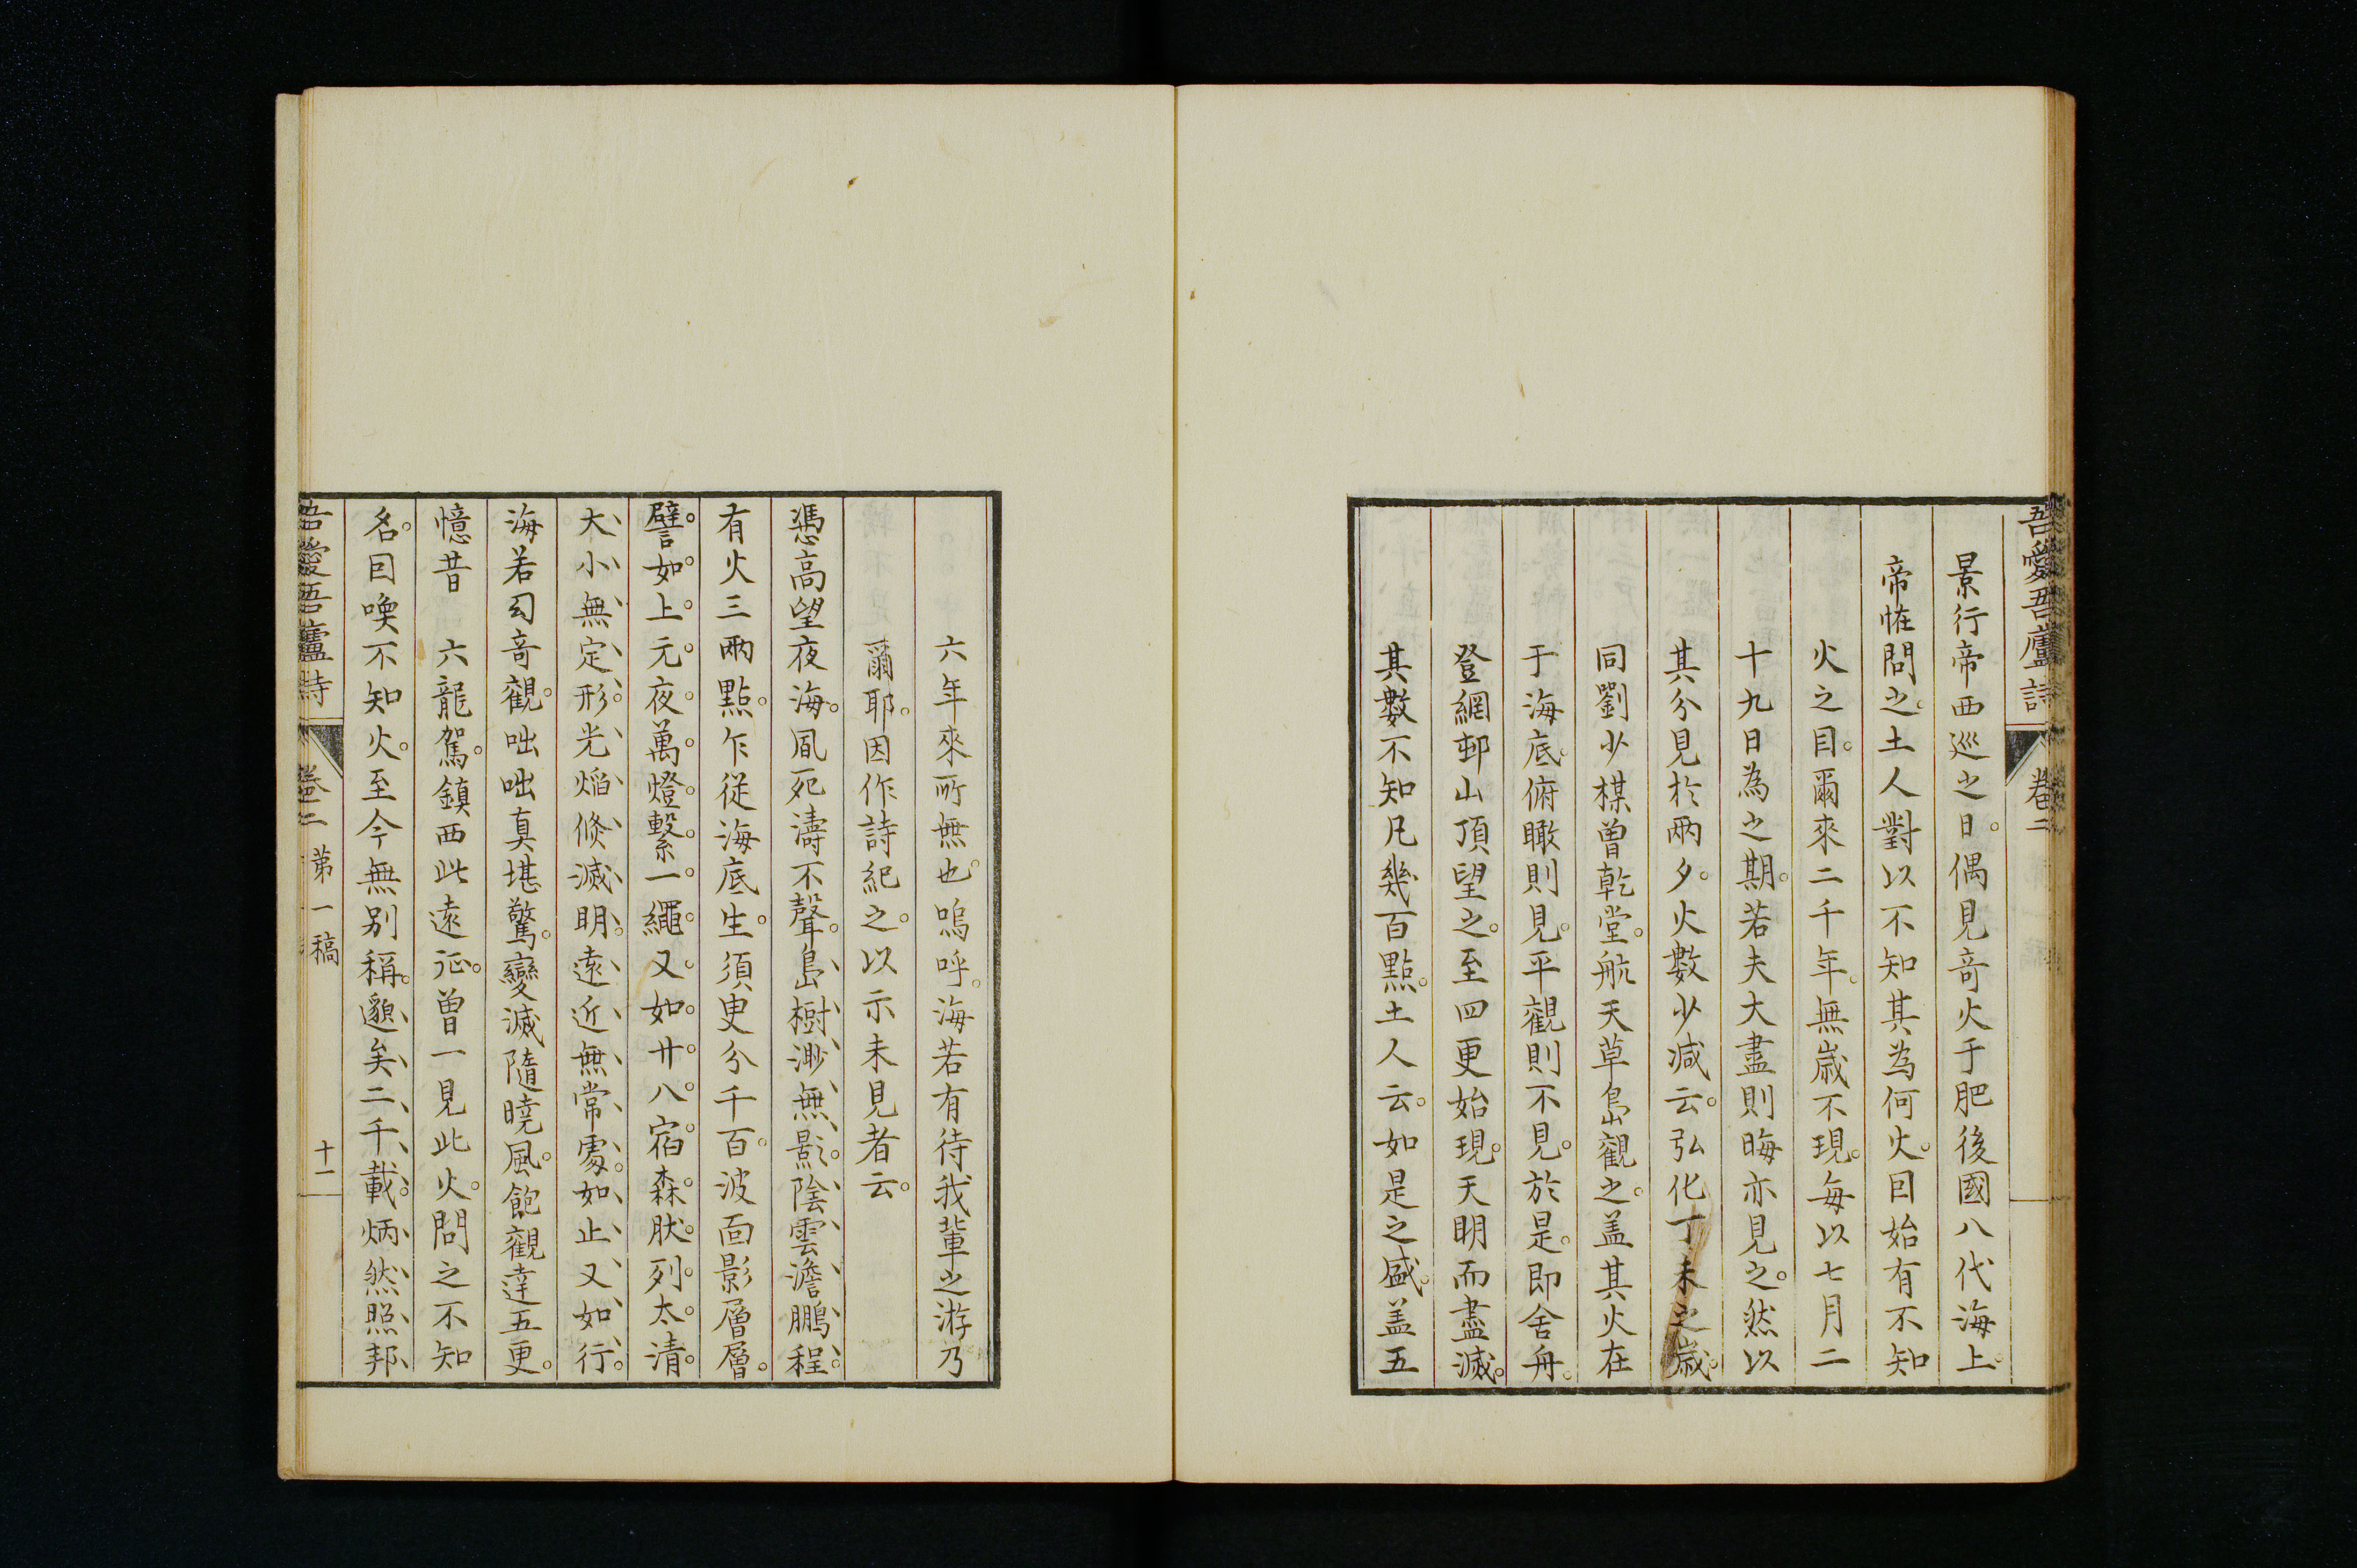 吾愛吾廬詩 卷二
景行帝西巡之日。偶見奇火于肥後國八代海上。
帝恠問之。土人對以不知其為何火。因始有不知
火之目。爾來二千年。無歲不現。每以七月二
十九日為之期。若夫大盡則晦亦見之。然以
其分見於兩夕。火數少減云。弘化丁未之歲。
同劉少楳曾乾堂。航天草島觀之。盖其火在
于海底。俯瞰則見。平觀則不見。於是。即舍舟。
登網邨山頂望之。至四更始現。天明而盡滅。
其數不知凡幾百點。土人云。如是之盛。盖五
六年來所無也。嗚呼。海若有待我輩之游乃
爾耶。因作詩紀之。以示未見者云。
憑高望夜海。風死濤不聲。島樹渺無影。陰雲澹鵬程。
有火三兩點。乍從海底生。須臾分千百。波面影層層。
譬如上元夜。萬燈繫一繩。又如廿八宿。森肰列太清。
大小無定形。光熖倐滅明。遠近無常處。如止又如行。
海若幻奇觀。咄咄真堪驚。變滅隨曉風。飽觀達五更。
憶昔 六龍駕。鎮西此遠征。曾一見此火。問之不知
名。因喚不知火。至今無別稱。邈矣二千載。炳然照邦
吾愛吾廬詩 卷二 第一稿 十一